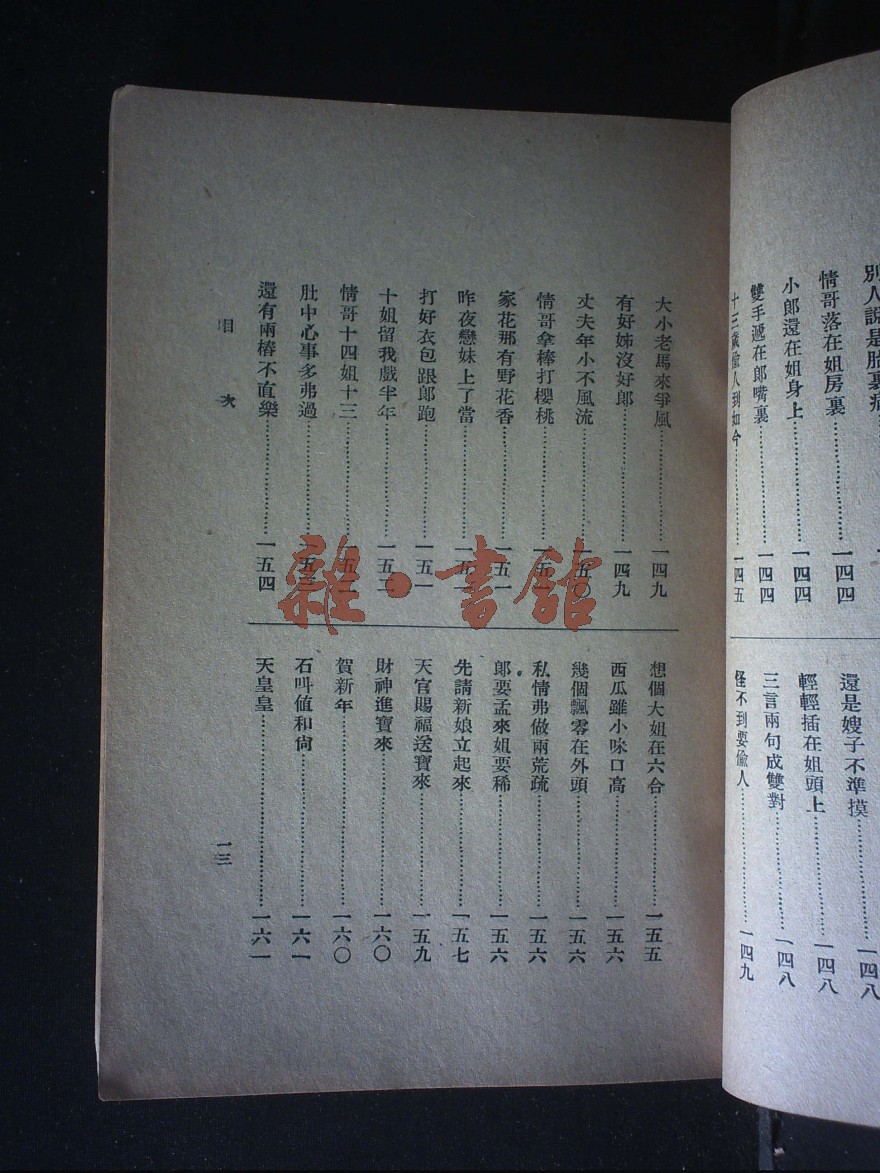 別人說是胎裏病
情哥落在姐房裏………一四四
小郎還在姐身上………一四四
雙手遞在郎嘴裏………一四四
十三歲偷人到如今………一四五
還是嫂子不準摸………一四八
輕輕插在姐頭上………一四八
三言兩句成雙對………一四八
怪不到要偷人………一四九
大小老馬來爭風………一四九
有好姊沒好郎………一四九
丈夫年小不風流………一五〇
情哥拿棒打櫻桃………一五
家花那有野花香………一五一
昨夜戀妹上了當………一五
打好衣包跟郎跑………一五一
十姐留我戲半年………一五
情哥十四姐十三………一五
肚中心事多弗過………一五
還有兩樁不直樂………一五四
想個大姐在六合………一五五
西瓜雖小味口高………一五六
幾個飄零在外頭………一五六
私情弗做兩荒疏………一五六
郎要孟來姐要稀………一五六
先請新娘立起來………一五七
天官賜福送寶來………一五九
財神進寶來………一六〇
賀新年………一六〇
石叫值和尙………一六一
天皇皇………一六一
目次
一三
雜·書館